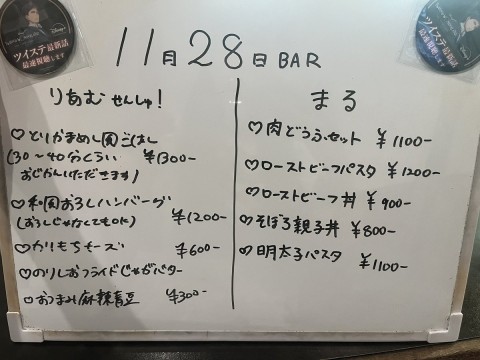 ツイステ最新話
最速視聴します
Disney+
ツイステ最新話
最速視聴します
Disney+
11月28日BAR
りあむせんしゅ!
♡とりかまめし風ごはん
(30〜40分くらい ¥1300-
おじかんいただきます)
♡和風おろしハンバーグ
(おろしじゃなくてもOK) ¥1200-
♡かりもちチーズ ¥600-
♡のりしおフライドじゃがバター
♡おつまみ麻辣青豆 ¥300-
まる
♡肉どうふセット ¥1100-
♡ローストビーフパスタ ¥1200-
♡ローストビーフ丼 ¥900-
♡そぼろ親子丼 ¥800-
♡明太子パスタ ¥1100-